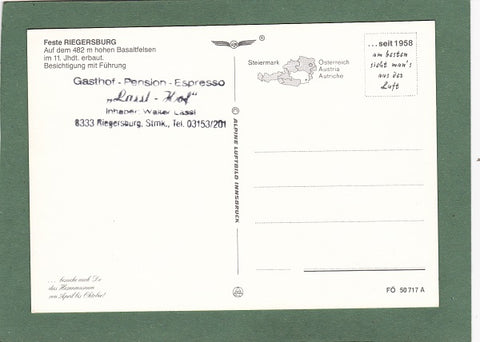 Feste RIEGERSBURG
Auf dem 482 m hohen Basaltfelsen
im 11. Jhdt. erbaut.
Besichtigung mit Führung
Gasthof - Pension - Espresso
„Lassl - Hof“
Inhaber: Walter Lassl
8333 Riegersburg, Stmk., Tel. 03153/201
Steiermark
Österreich
Austria
Autriche
®
...seit 1958
am besten
sieht man's
aus der
Luft
© ALPINE LUFTBILD INNSBRUCK
... besuche mich Du
das Hexenmuseum
von April bis Oktober!
FÖ 50 717 A